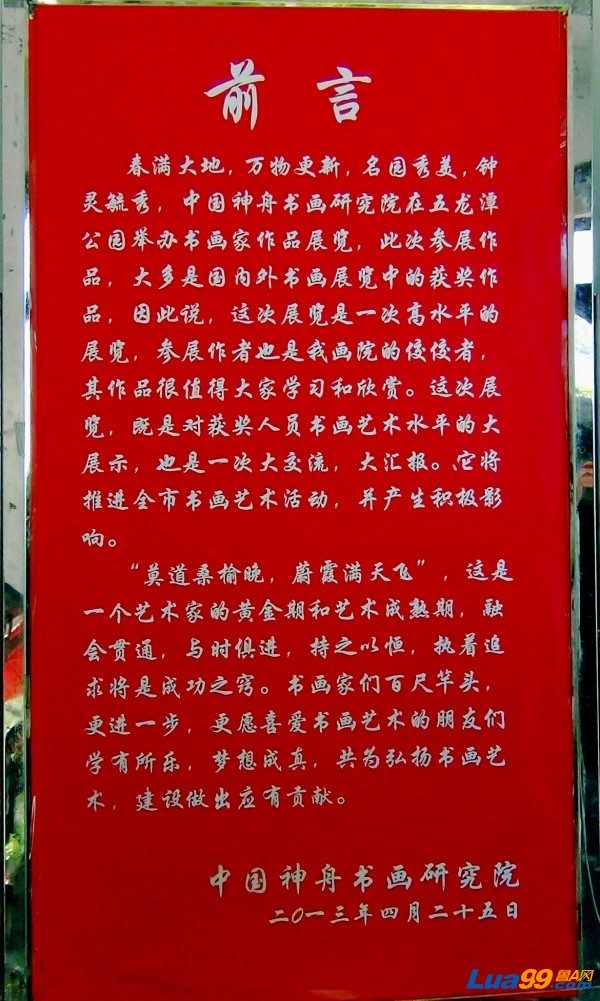 前言
春满大地，万物更新，名园秀美，钟
灵毓秀，中国神舟书画研究院在五龙潭
公园举办书画家作品展览，此次参展作
品，大多是国内外书画展览中的获奖作
品，因此说，这次展览是一次高水平的
展览，参展作者也是我画院的佼佼者，
其作品很值得大家学习和欣赏。这次展
览，既是对获奖人员书画艺术水平的大
展示，也是一次大交流，大汇报。它将
推进全市书画艺术活动，并产生积极影
响。
“莫道桑榆晚，蔚霞满天飞”，这是
一个艺术家的黄金期和艺术成熟期，融
会贯通，与时俱进，持之以恒，执着追
求将是成功之窍。书画家们百尺竿头，
更进一步，更愿喜爱书画艺术的朋友们
学有所乐，梦想成真，共为弘扬书画艺
术，建设做出应有贡献。
中国神舟书画研究院
二〇一三年四月二十五日
Lua99.com
鲁A网